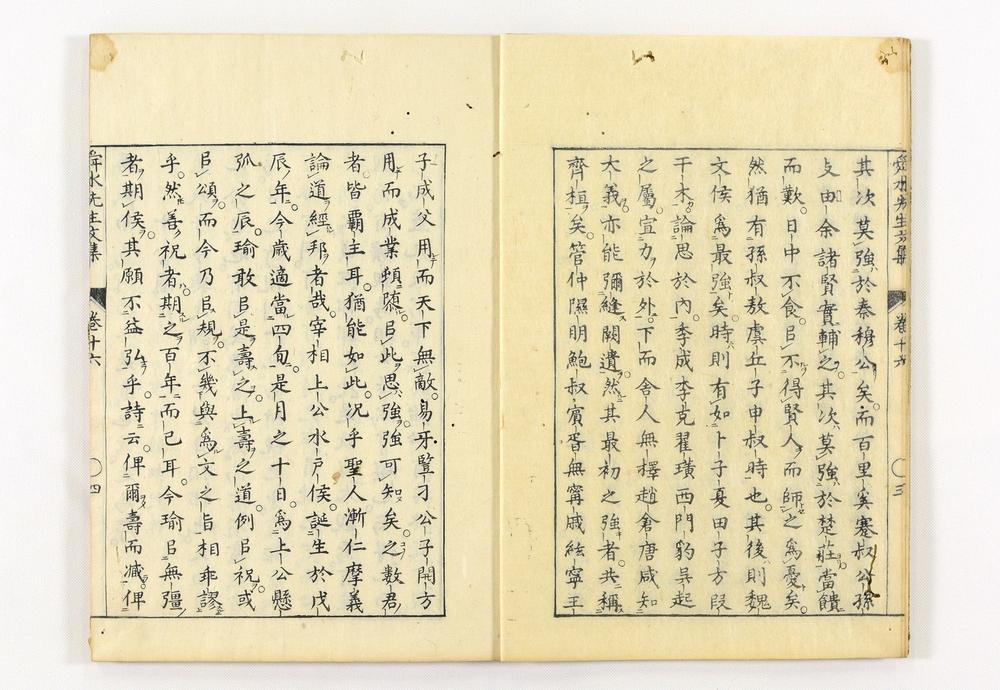 其次莫強於秦穆公矣而百里奚蹇叔公孫
攴由余諸賢實輔之其次莫強於楚莊當饋
而歎日中不食㠯不得賢人而師之爲憂矣
然猶有孫叔敖虞丘子申叔時也其後則魏
文侯爲最強矣時則有如卜子夏田子方段
干木論思於內季成李克翟璜西門豹吳起
之屬宣力於外下而舍人無擇趙倉唐咸知
大義亦能彌縫闕遺然其最初之強者共稱
齊桓矣管仲隰朋鮑叔賓胥無甯戚絃寧王
舜水先生文集 卷十六 三
子成父用而天下無敵易牙豎刁公子開方
用而成業頓隳㠯此思強強可知矣之數君
者皆霸主耳猶能如此況乎聖人漸仁摩義
論道經邦者哉宰相上公水戶侯誕生於戊
辰年今歲適當四旬是月之十日爲上公懸
弧之辰瑜敢㠯是壽之上壽之道例㠯祝或
㠯頌而今乃㠯規不幾與爲文之旨相乖謬
乎然善祝者期之百年而已耳今瑜㠯無彊
者期侯其願不益弘乎詩云俾爾壽而減俾
舜水先生文集 卷十六 四